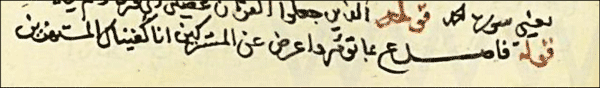 يعني سورة الحمد قوله الذين جعلوا القرآن عضين
قوله فاصدع بما تؤمر واعرض عن المشركين انا كفيناك المستهزئين